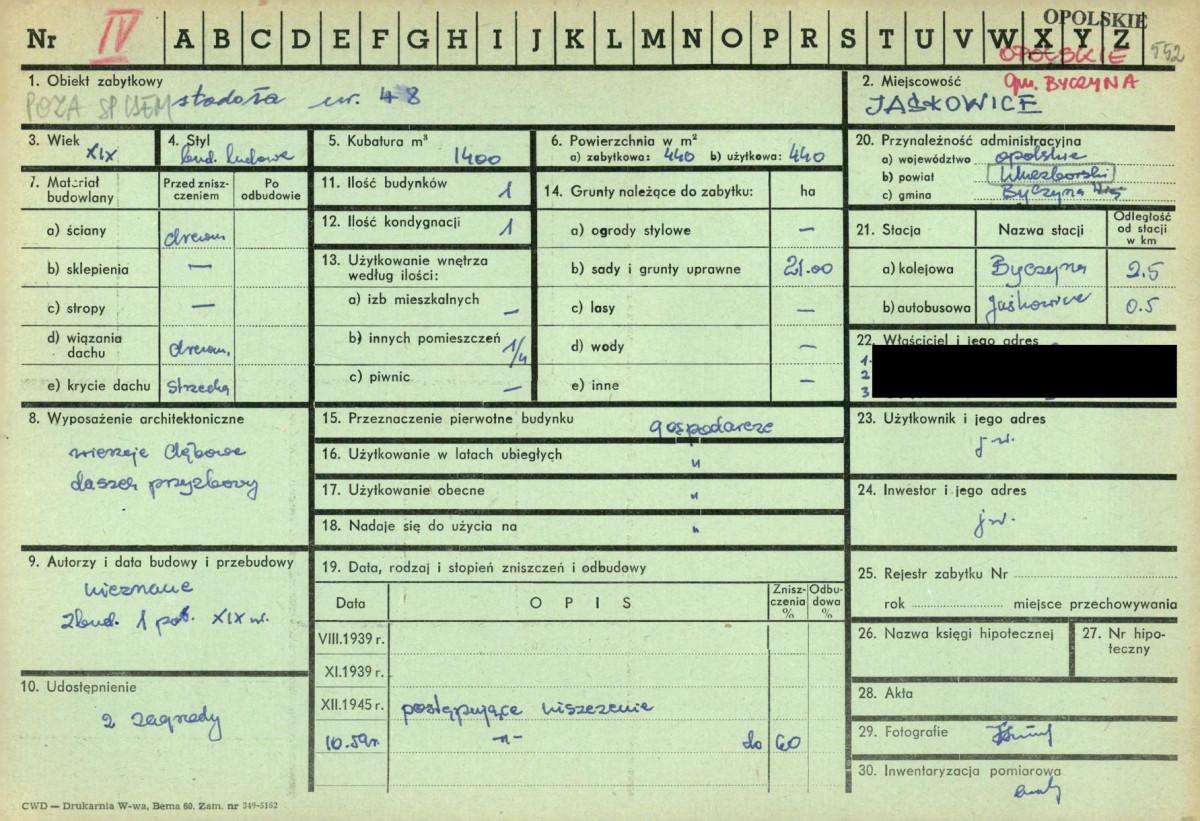 OPOLSKIE
Nr IV A B C D E F G H I J K L M N O P R S T U V W X Y Z 552
OPOLSKIE
gm. BYCZYNA
1. Obiekt zabytkowy
POZA SPISEM stodoła nr. 48
2. Miejscowość
JAŚKOWICE
3. Wiek
XIX
4. Styl
bud. ludowe
5. Kubatura m³
1400
6. Powierzchnia w m²
a) zabytkowa: 440 b) użytkowa: 440
20. Przynależność administracyjna
a) województwo opolskie
b) powiat Kluczborski
c) gmina Byczyna
7. Materiał budowlany
Przed zniszczeniem
Po odbudowie
a) ściany drewn.
b) sklepienia —
c) stropy —
d) wiązania dachu drewn.
e) krycie dachu strzecha
11. Ilość budynków 1
12. Ilość kondygnacji 1
13. Użytkowanie wnętrza według ilości:
a) izb mieszkalnych —
b) innych pomieszczeń 1/4
c) piwnic —
14. Grunty należące do zabytku: ha
a) ogrody stylowe —
b) sady i grunty uprawne 21.00
c) lasy —
d) wody —
e) inne —
21. Stacja Nazwa stacji Odległość od stacji w km
a) kolejowa Byczyna 2.5
b) autobusowa Jaśkowice 0.5
22. Właściciel i jego adres
1.
2
3
8. Wyposażenie architektoniczne
wierzeje dębowe
daszek przyzbowy
15. Przeznaczenie pierwotne budynku gospodarcze
16. Użytkowanie w latach ubiegłych "
17. Użytkowanie obecne "
18. Nadaje się do użycia na "
23. Użytkownik i jego adres
j.w.
24. Inwestor i jego adres
j.w.
9. Autorzy i data budowy i przebudowy
nieznane
zbud. 1 poł. XIX w.
19. Data, rodzaj i stopień zniszczeń i odbudowy
Data OPIS Zniszczenia % Odbudowa %
VIII.1939 r.
XI.1939 r.
XII.1945 r. postępujące niszczenie
10.59r. -"- do 60
25. Rejestr zabytku Nr
rok miejsce przechowywania
26. Nazwa księgi hipotecznej
27. Nr hipoteczny
10. Udostępnienie
z zagrody
28. Akta
29. Fotografie
30. Inwentaryzacja pomiarowa
CWD — Drukarnia W-wa, Bema 60. Zam. nr 349-5162